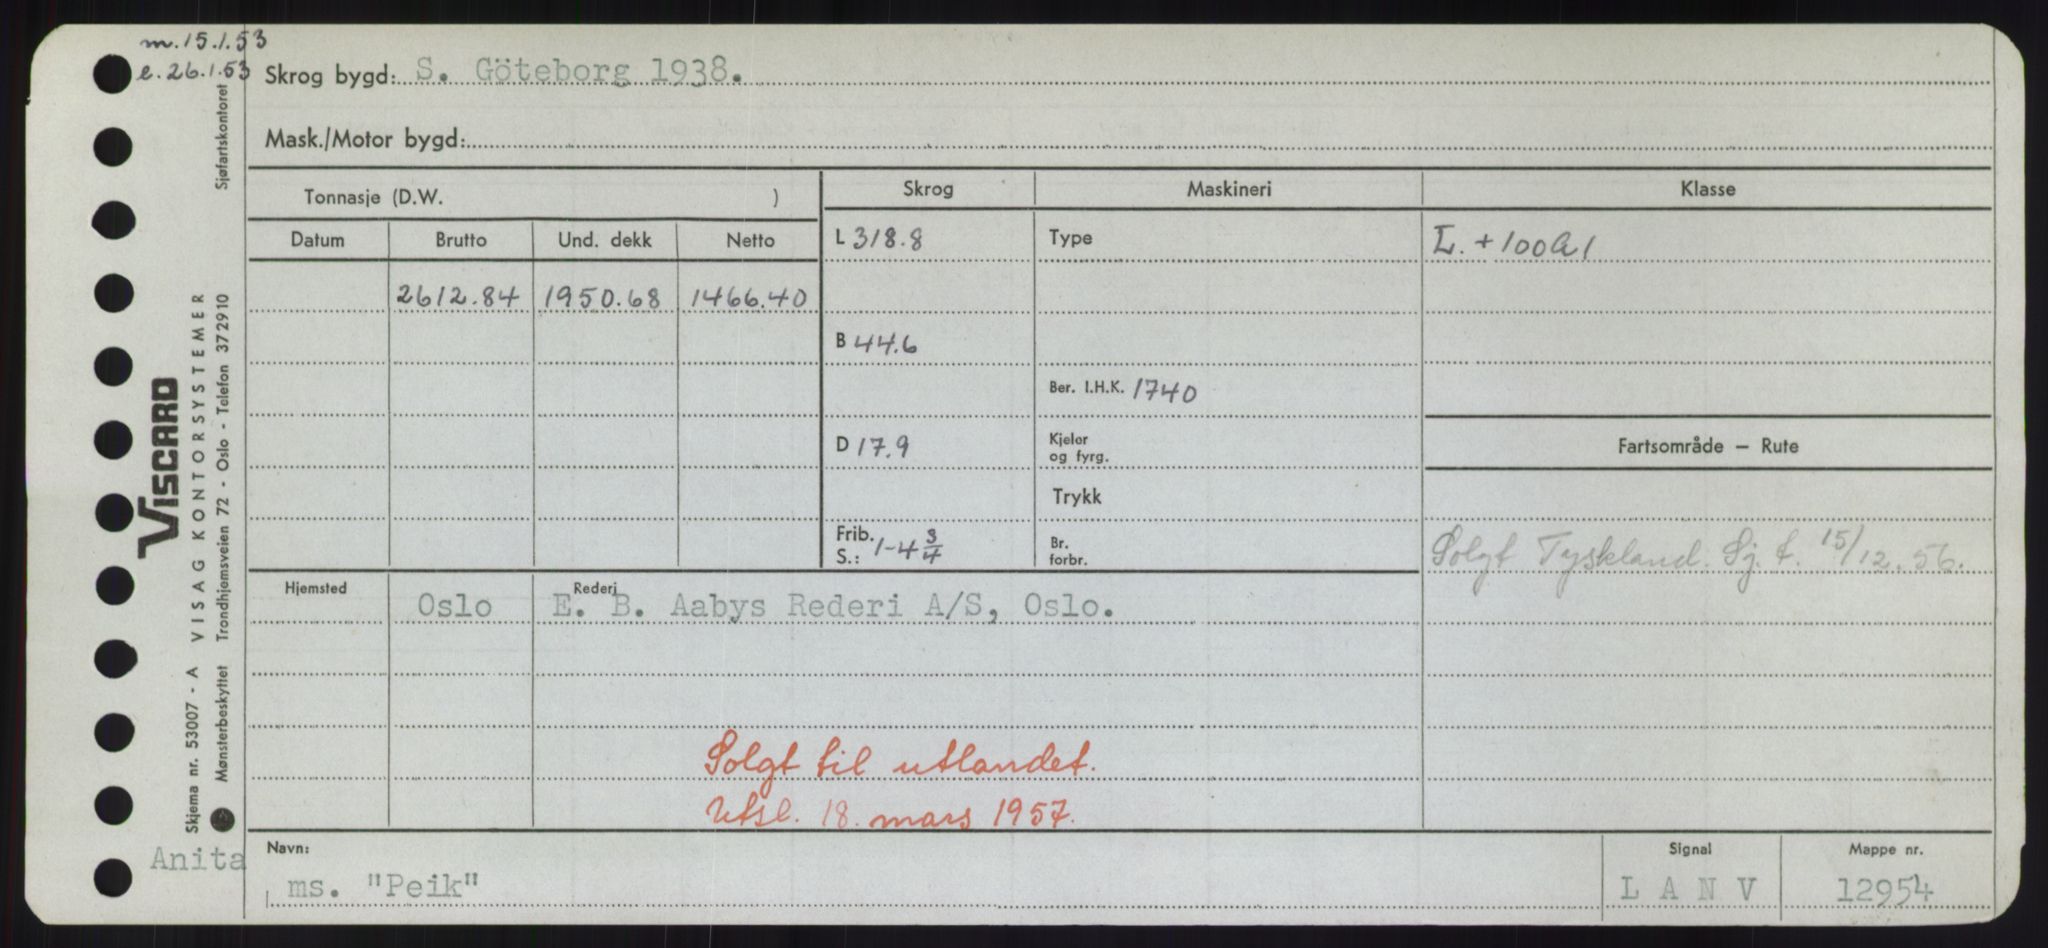 m. 15.1.53
e. 26.1.53
Skrog bygd: S. Göteborg 1938.
Mask./Motor bygd:
Tonnasje (D.W. )
Skrog Maskineri Klasse
Datum Brutto Und. dekk Netto
L 318.8 Type L. +100A1
2612.84 1950.68 1466.40
B 44.6
Ber. I.H.K. 1740
D 17.9 Kjeler og fyrg. Fartsområde — Rute
Trykk
Frib. S.: 1-4 3/4 Br. forbr. Solgt Tyskland. Sj. t. 15/12.56.
Hjemsted Oslo Rederi E. B. Aabys Rederi A/S, Oslo.
Solgt til utlandet.
Utsl. 18. mars 1957.
Navn: Signal Mappe nr.
Anita
ms. "Peik" L A N V 12954
VISCARD
Skjema nr. 53007 - A VISAG KONTORSYSTEMER
Mønsterbeskyttet Trondhjemsveien 72 - Oslo - Telefon 372910 Sjøfartskontoret